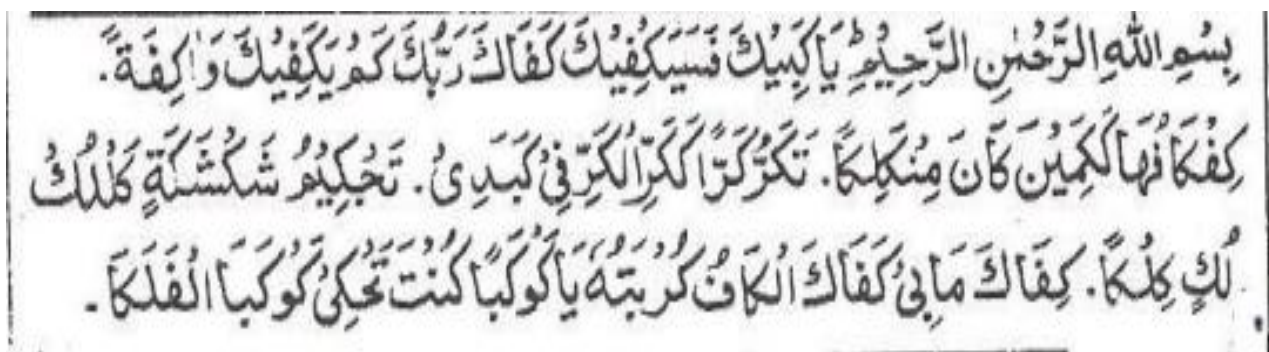 بِسْمِ اللهِ الرَّحْمٰنِ الرَّحِيْمِ يَا كَبِيْكَ فَسَيَكْفِيْكَ كَفَاكَ رَبُّكَ كَمْ يَكْفِيْكَ وَاكِفَةً.
كِفْكَا فُهَا لَكَمِيْنَ كَانَ مِنْكَلِكًا. تَكَرُّ كَرًّا كَكَرِّ الْكَرِّ فِيْ كَبَدِيْ. تَحْكِيْمُ شَكْشَكَةٍ كَلُلُكُ
لُكٍ كِلُكًا. كِفَاكَ مَا بِيْ كَفَاكَ الْكَافُ كُرْبَتَهٗ يَا كَوْكَبًا كُنْتَ تَحْكِيْ كَوْكَبَا الْفَلَكَا۔